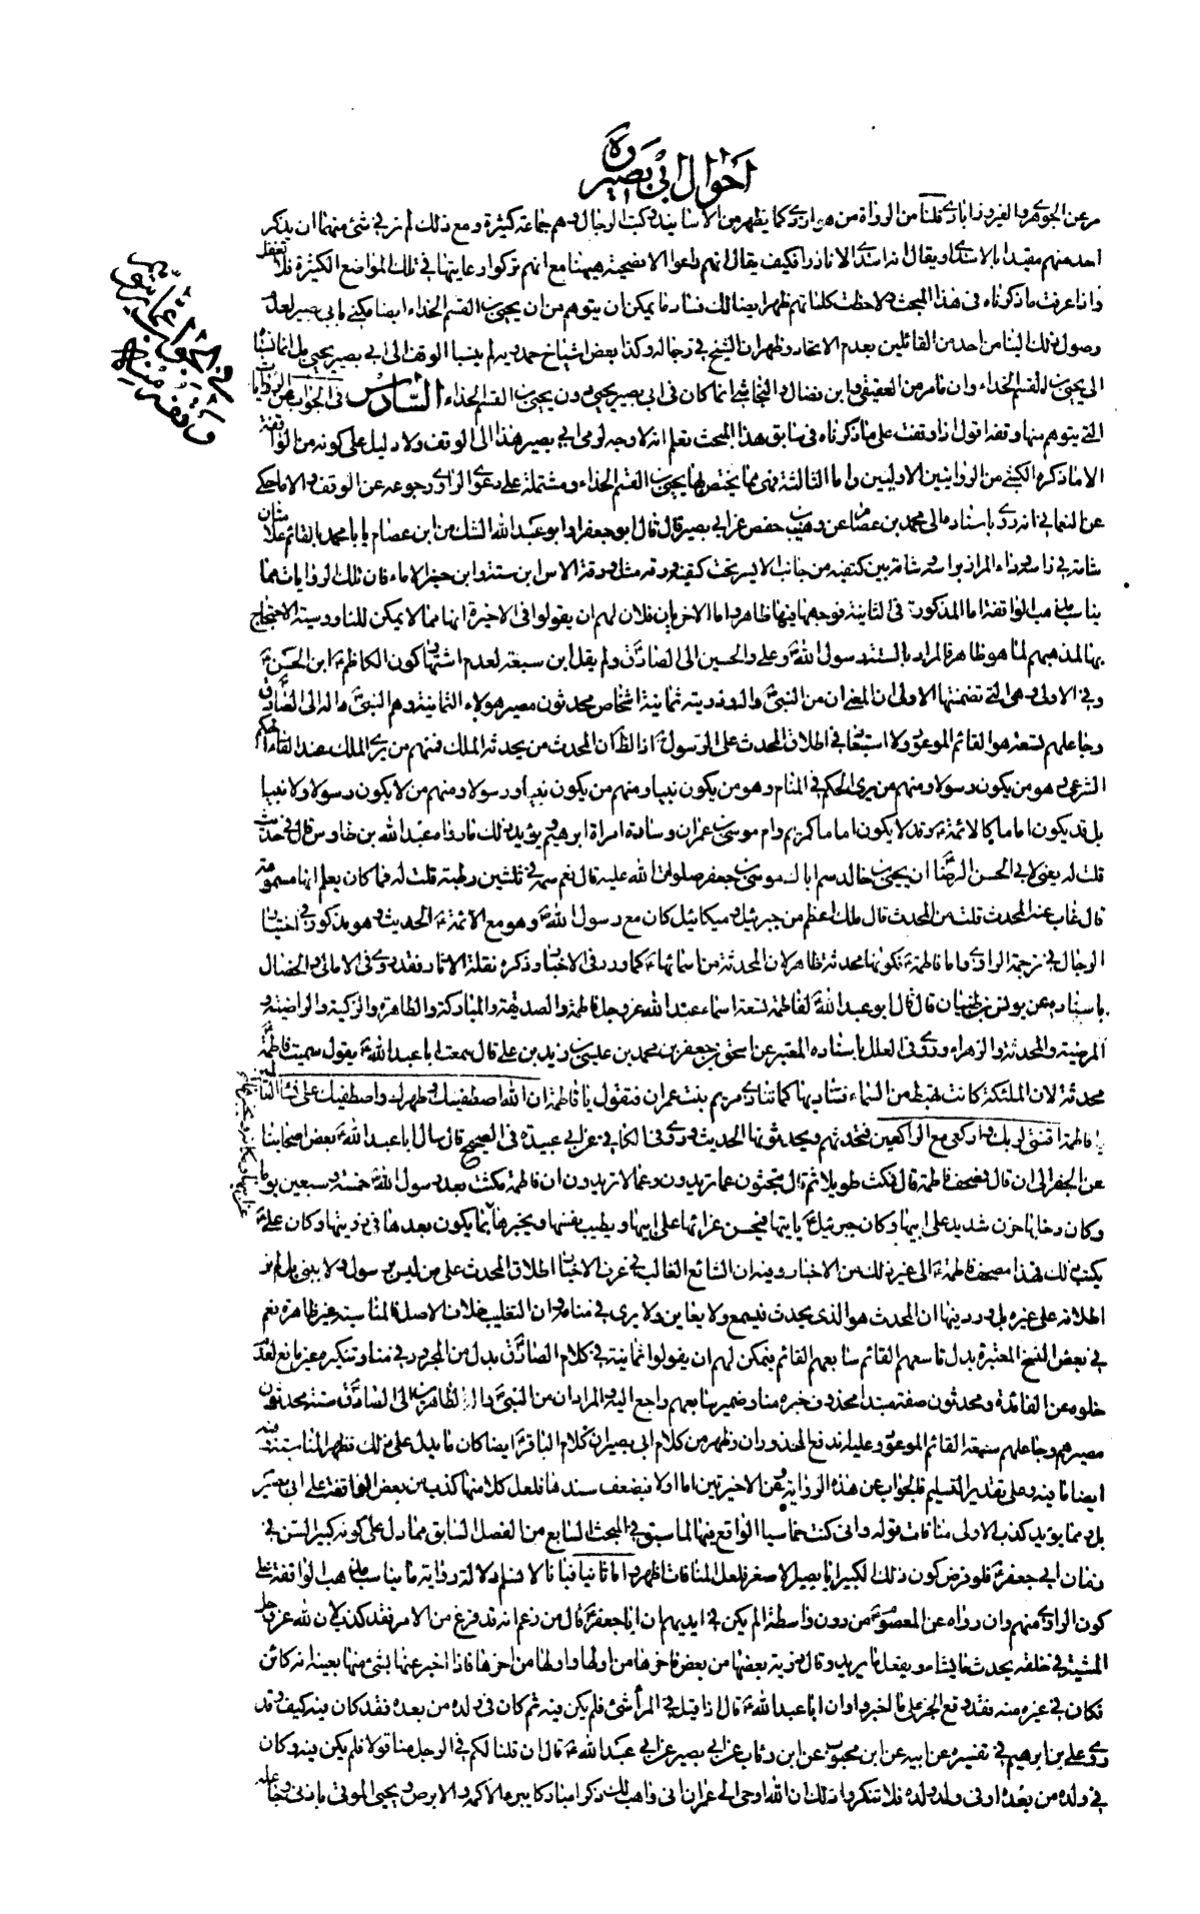 احوال ابي بصير ره
في الجواب عما يتوهم
مر عن الجوهري والفيروزآبادي قلنا من الرواة من هو ازدي كما يظهر من الاسانيد وكتب الرجال وهم جماعة كثيرة ومع ذلك لم نر في شئ منهما ان يذكر
احد منهم مقيدا بالاسدي او يقال انه اسدي الا نادرا فكيف يقال انهم راعوا الافصحية هيهنا مع انهم تركوا رعايتها في تلك المواضع الكثيرة فلا تغفل
واذا عرفت ما ذكرناه في هذا المبحث ولاحظت كلماتهم ظهر ايضا لك فساد ما يمكن ان يتوهم من ان يحيى بن القسم الحذاء ايضا مكنى بابي بصير لعدم
وصول ذلك الينا من احد من القائلين بعدم الاتحاد وظهر ان الشيخ في رجاله وكذا بعض اشياخ حمدويه لم ينسبا الوقف الى ابي بصير يحيى بل انما نسبا
الى يحيى بن القسم الحذاء وان ما مر من العقيقي وابن فضال والنجاشي انما كان في ابي بصير يحيى دون يحيى بن القسم الحذاء السادس في الجواب عن الروايات
التي يتوهم منها وقفه اقول اذا وقفت على ما ذكرناه في سابق هذا المبحث تعلم انه لا وجه لرمي ابي بصير هذا الى الوقف ولا دليل على كونه من الواقفة
الا ما ذكره الكشي من الروايتين الاوليين واما الثالثة فهي مما يختص بها يحيى بن القسم الحذاء ومشتملة على دعوى الراوي رجوعه عن الوقف والا ما حكي
عن النعماني انه روى باسناده الى محمد بن عصام عن وهيب بن حفص عن ابي بصير قال قال ابو جعفر او ابو عبد الله الشك من ابن عصام يا با محمد بالقائم علامتان
شامة في راسه وداء الحزاز براسه وشامة بين كتفيه من جانب الايسر تحت كتفيه ورقة مثل ورقة الاس ابن ستة وابن خيرة الاماء فان تلك الروايات مما
يناسب مذهب الواقفة اما المذكورة في الثانية فوجهها فيها ظاهر واما الاخريان فلان لهم ان يقولوا في الاخيرة انها مما لا يمكن للناووسية الاحتجاج
بها لمذهبهم لما هو ظاهر فالمراد بالستة رسول الله وعلي والحسين الى الصادق ولم يقل ابن سبعة لعدم اشتهار كون الكاظم ابن الحسن
وفي الاولى وهي التي تضمنتها الاولى ان المعنى ان من النبي واله وذريته ثمانية اشخاص محدثون مصير هؤلاء الثمانية وهم النبي واله الى الصادق
وجاعلهم تسعة هو القائم الموعود ولا استبعاد في اطلاق المحدث على الرسول اذ الظ ان المحدث من يحدثه الملك فمنهم من يرى الملك عند القاء الحكم
الشرعي وهو من يكون رسولا ومنهم من يرى الحكم في المنام وهو من يكون نبيا ومنهم من يكون نبيا ورسولا ومنهم من لا يكون رسولا ولا نبيا
بل قد يكون اماما كالائمة وقد لا يكون اماما كمريم وام موسى بن عمران وسارة امراة ابرهيم ويؤيد ذلك ما رواه عبد الله بن طاوس قال في حديث
قلت له يعني لابي الحسن الرضا ان يحيى بن خالد سم اباك موسى بن جعفر صلوات الله عليه قال نعم سمه في ثلثين رطبة قلت له فما كان يعلم انها مسمومة
قال غاب عنه المحدث قلت من المحدث قال ملك اعظم من جبرئيل وميكائيل كان مع رسول الله وهو مع الائمة الحديث وهو مذكور في اختيار
الرجال في ترجمة الراوي واما فاطمة فكونها محدثة ظاهر لان المحدثة من اسمائها كما ورد في الاخبار وذكره نقلة الاثار فقد روى في الامالي والخصال
باسناده عن يونس بن ظبيان قال قال ابو عبد الله لفاطمة تسعة اسماء عند الله عز وجل فاطمة والصديقة والمباركة والطاهرة والزكية والراضية
المرضية والمحدثة والزهراء وروى في العلل باسناده المعتبر عن اسحق بن جعفر بن محمد بن عيسى بن زيد بن علي قال سمعت ابا عبد الله يقول سميت فاطمة
محدثة لان الملئكة كانت تهبط من السماء فتناديها كما تنادي مريم بنت عمران فتقول يا فاطمة ان الله اصطفيك وطهرك واصطفيك على نساء العالمين
يا فاطمة اقنتي لربك واركعي مع الراكعين فتحدثهم ويحدثونها الحديث وروى في الكافي عن ابي عبيدة في الصحيح قال سال ابا عبد الله بعض اصحابنا
عن الجفر الى ان قال فمصحف فاطمة قال فسكت طويلا ثم قال انكم تبحثون عما تريدون وعما لا تريدون ان فاطمة مكثت بعد رسول الله خمسة وسبعين يوما
وكان دخلها حزن شديد على ابيها وكان جبرئيل ياتيها فيحسن عزائها على ابيها ويطيب نفسها ويخبرها بما يكون بعدها في ذريتها وكان علي
يكتب ذلك فهذا مصحف فاطمة الى غير ذلك من الاخبار وفيه ان الشائع الغالب في عرف الاخبار اطلاق المحدث على من ليس برسول ولا نبي بل لم نر
اطلاقه على غيره بل ورد فيها ان المحدث هو الذي يحدث فيسمع ولا يعاين ولا يرى في منامه وان التغليب خلاف الاصل فالمناسبة غير ظاهرة نعم
في بعض النسخ المعتبرة بدل تاسعهم القائم سابعهم القائم فيمكن لهم ان يقولوا ثمانية في كلام الصادق بدل من المجرور في منا وتنكيره غير مانع لعدم
خلوه عن الفائدة ومحدثون صفة مبتدا محذوف خبره منا وضمير سابعهم راجع اليه والمراد ان من النبي واله الطاهرين الى الصادق ستة محدثون
مصيرهم وجاعلهم سبعة القائم الموعود وعليه اندفع المحذوران وظهر من كلام ابي بصير ان كلام الباقر ايضا كان ما يدل على ذلك فظهر المناسبة فيه
ايضا ما فيه وعلى تقدير التسليم فالجواب عن هذه الرواية وعن الاخيرتين اما اولا فبضعف سندها فلعل كلا منها كذب من بعض الواقفة على ابي بصير
بل مما يؤيد كذب الاولى منافات قوله واني كنت خماسيا الواقع فيها لما سبق في المبحث السابع من الفصل السابق مما دل على كونه كبير السن في
زمان ابي جعفر فلو فرض كون ذلك لكبير ابا بصير الاصغر فلعل المنافات اظهر واما ثانيا فبانا لا نسلم دلالة رواية ما يناسب مذهب الواقفة على
كون الراوي منهم وان رواه عن المعصوم من دون واسطة الم يكن في ايديهم ان ابا جعفر قال من زعم انه قد فرغ من الامر فقد كذب لان لله عز وجل
المشية في خلقه يحدث ما يشاء ويفعل ما يريد وقال ذرية بعضها من بعض فاخرها من اولها واولها من اخرها فاذا اخبر عنها بشئ منها بعينه انه كائن
فكان في غيره منه فقد وقع الخبر على ما اخبر وان ابا عبد الله قال اذا قيل في المرء شئ فلم يكن فيه ثم كان في ولده من بعده فقد كان فيه كيف وقد
روى علي بن ابرهيم في تفسيره عن ابيه عن ابن محبوب عن ابن رئاب عن ابي بصير عن ابي عبد الله قال ان قلنا لكم في الرجل منا قولا فلم يكن فيه وكان
في ولده من بعده او في ولد ولده فلا تنكروا ذلك ان الله اوحى الى عمران اني واهب لك ذكرا مباركا يبرء الاكمه والابرص ويحيي الموتى باذني وجاعله